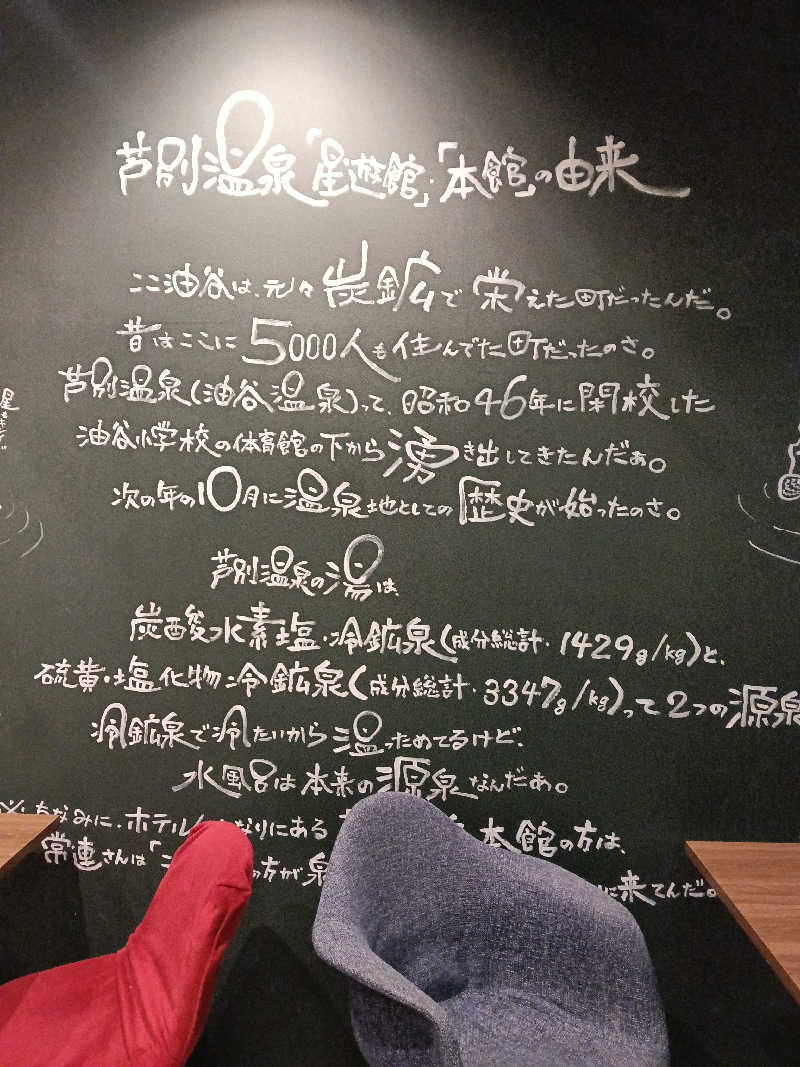 芦別温泉「星遊館」・「本館」の由来
ここ油谷は、元々炭鉱で栄えた町だったんだ。
昔はここに5000人も住んでた町だったのさ。
芦別温泉(油谷温泉)って、昭和46年に閉校した
油谷小学校の体育館の下から湧き出してきたんだぁ。
次の年の10月に温泉地としての歴史が始ったのさ。
芦別温泉の湯は、
炭酸水素塩・冷鉱泉(成分総計・1429g/kg)と、
硫黄・塩化物冷鉱泉(成分総計・3347g/kg)って2つの源泉
冷鉱泉で冷たいから温っためてるけど、
水風呂は本来の源泉なんだぁ。
※ちなみに、ホテル となりにある 本館の方は、
常連さんは「 の方が泉 に来てんだ。